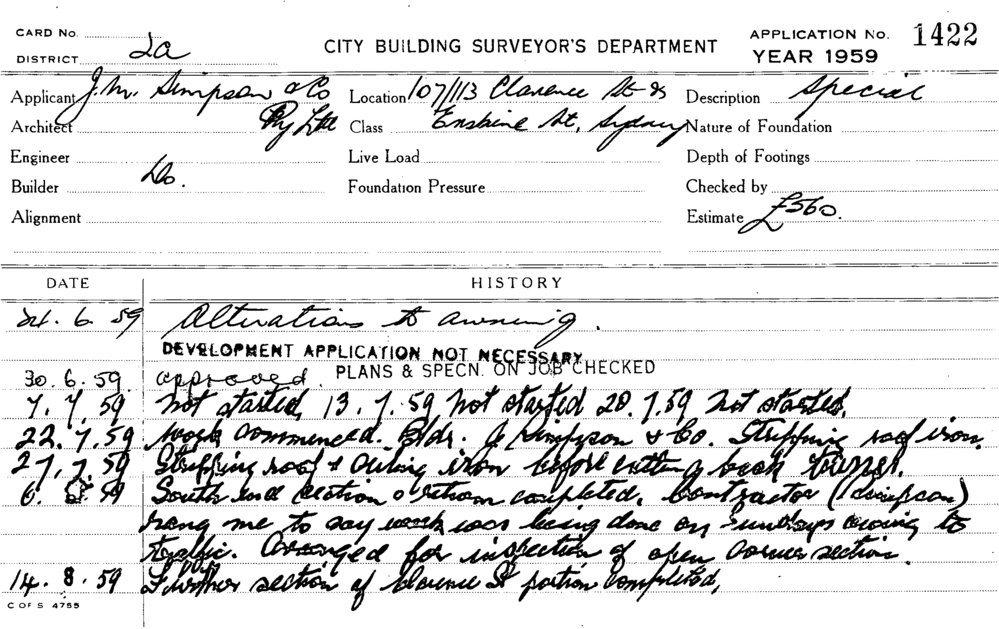 CARD No.
DISTRICT 2a
CITY BUILDING SURVEYOR'S DEPARTMENT
APPLICATION No. 1422
YEAR 1959
Applicant J. M. Simpson & Co
Pty Ltd
Location 107/113 Clarence St &
Erskine St, Sydney
Description Special
Architect
Class
Nature of Foundation
Engineer
Live Load
Depth of Footings
Builder Do.
Foundation Pressure
Checked by
Alignment
Estimate £560.
DATE HISTORY
24. 6. 59 Alterations to awning.
DEVELOPMENT APPLICATION NOT NECESSARY
PLANS & SPECN. ON JOB CHECKED
30. 6. 59. approved.
7. 7. 59 Not started, 13. 7. 59 Not started 20. 7. 59 Not started.
22. 7. 59 Work commenced. Bldr. J Simpson & Co. Stripping roof iron.
27. 7. 59 Stripping roof & ceiling iron before cutting back
6. 8. 59 South end section completed. Contractor (Simpson)
rang me to say work was being done on Sundays owing to
traffic. Arranged for inspection of open corner section
14. 8. 59 Further section of Clarence St portion completed.
C OF S 4755